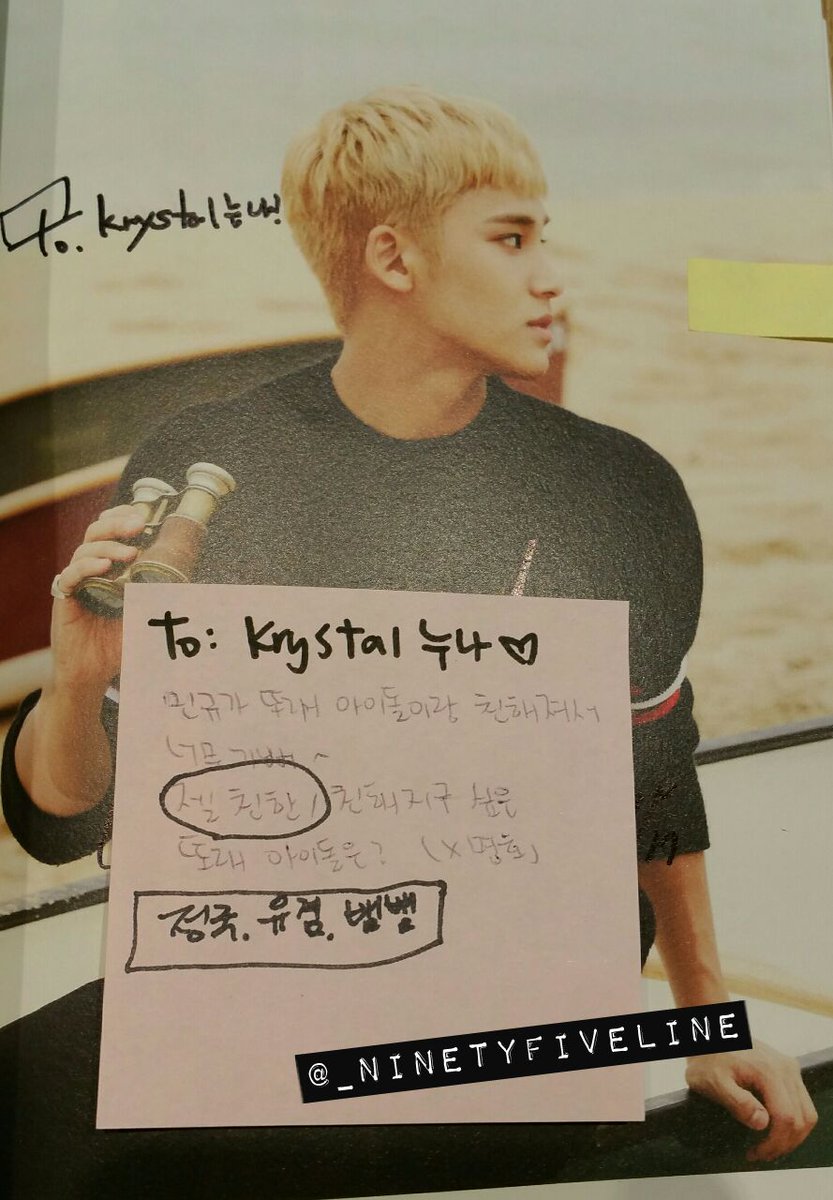 To. Krystal누나!
To: Krystal 누나♡
민규가 또래 아이돌이랑 친해져서
너무 기뻐~
젤 친한 / 친해지구 싶은
또래 아이돌은? (X명호)
정국. 유겸. 뱀뱀
@_NINETYFIVELINE